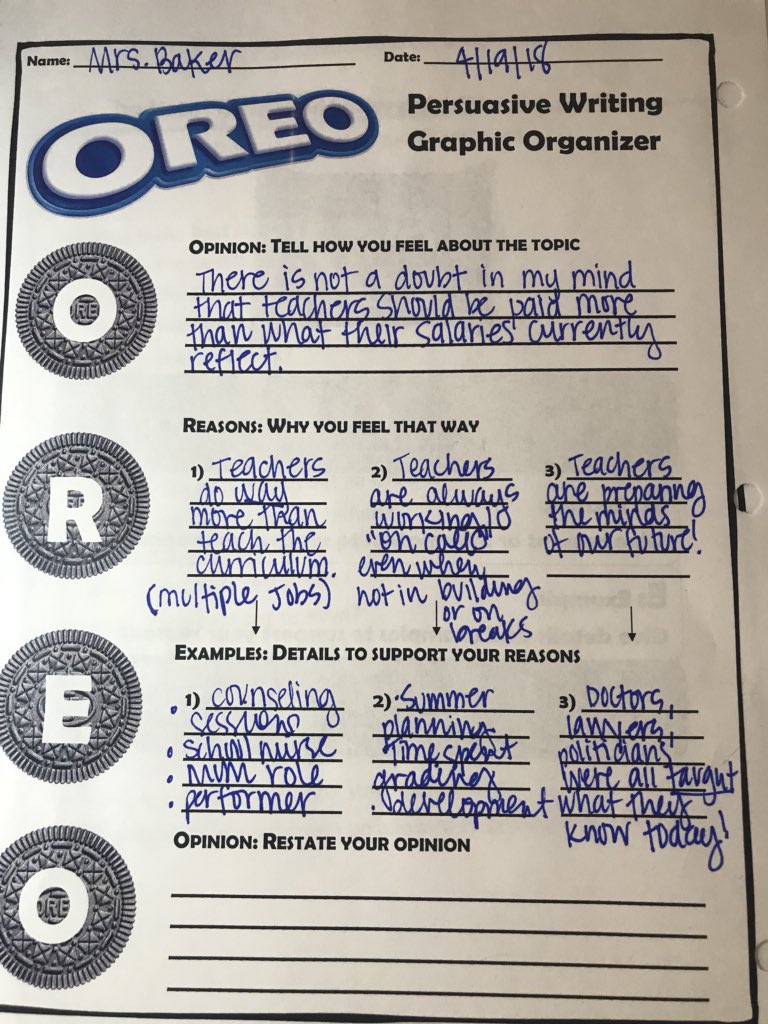 Name: Mrs. Baker Date: 4/19/18
OREO
Persuasive Writing
Graphic Organizer
O
OPINION: TELL HOW YOU FEEL ABOUT THE TOPIC
There is not a doubt in my mind
that teachers should be paid more
than what their salaries currently
reflect.
R
REASONS: WHY YOU FEEL THAT WAY
1) Teachers
do way
more than
teach the
curriculum.
(multiple jobs)
2) Teachers
are always
working/
"on call"
even when
not in building
or on
breaks
3) Teachers
are preparing
the minds
of our future!
E
EXAMPLES: DETAILS TO SUPPORT YOUR REASONS
1) counseling
sessions
• school nurse
• mom role
• performer
2) • Summer
planning
• Time spent
grading
• development
3) Doctors,
lawyers,
politicians
were all taught
what they
know today!
O
OPINION: RESTATE YOUR OPINION